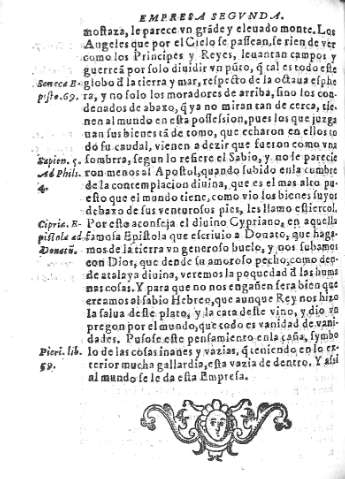 EMPRESA SEGVNDA.
mostaza, le parece vn grãde y eleuado monte. Los
Angeles que por el Cielo se passean, se rien de ver
como los Principes y Reyes, leuantan campos y
guerreã por solo diuidir vn pũto, q̃ tal es todo este
Seneca E-
globo d̃ la tierra y mar, respecto de la octaua esphe
pisto. 69.
ra, y no solo los moradores de arriba, sino los con-
denados de abaxo, q̃ ya no miran tan de cerca, tie-
nen al mundo en esta possession, pues los que juzga
uan sus bienes tã de tomo, que echaron en ellos to
do su caudal, vienen a dezir que fueron como vna
Sapien. 5.
sombrra, segun lo refiere el Sabio, y no le parecie
Ad Phil.
ron menos al Apostol, quando subido en la cumbre
de la contemplacion diuina, que es el mas alto pu
esto que el mundo tiene, como vio los bienes suyos
debaxo de sus venturosos pies, les llamo estiercol.
Cipria. E-
Por esto aconseja el diuino Cypriano, en aquella
pistola ad
famosa Epistola que escriuio a Donato, que haga-
Donatũ.
mos de la tierra vn generoso buelo, y nos subamos
con Dios, que dende su amoroso pecho, como den-
de atalaya diuina, veremos la poquedad d̃ las huma
nas cosas. Y para que no nos engañen sera bien que
creamos al sabio Hebreo, que aunque Rey nos hizo
la salua deste plato, y la cata deste vino, y dio vn
pregon por el mundo, que todo es vanidad de vani-
dades. Pusose este pensamiento en la caña, symbo
Pieri. lib.
lo de las cosas inanes y vazias, q̃ teniendo en lo ex-
59.
terior mucha gallardia, esta vazia de dentro. Y assi
al mundo se le da esta Empresa.